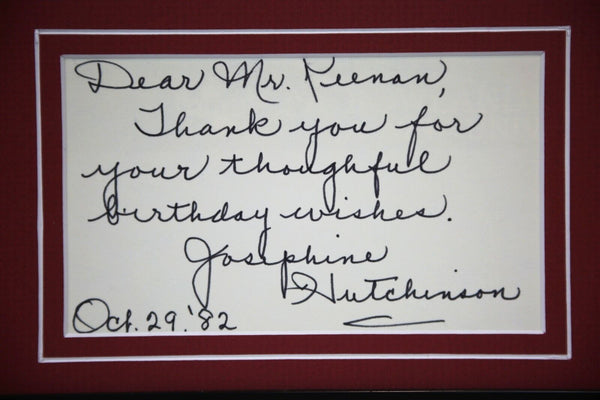 Dear Mr. Keenan,
Thank you for
your thoughful
birthday wishes.
Josephine
Hutchinson
Oct. 29. '82